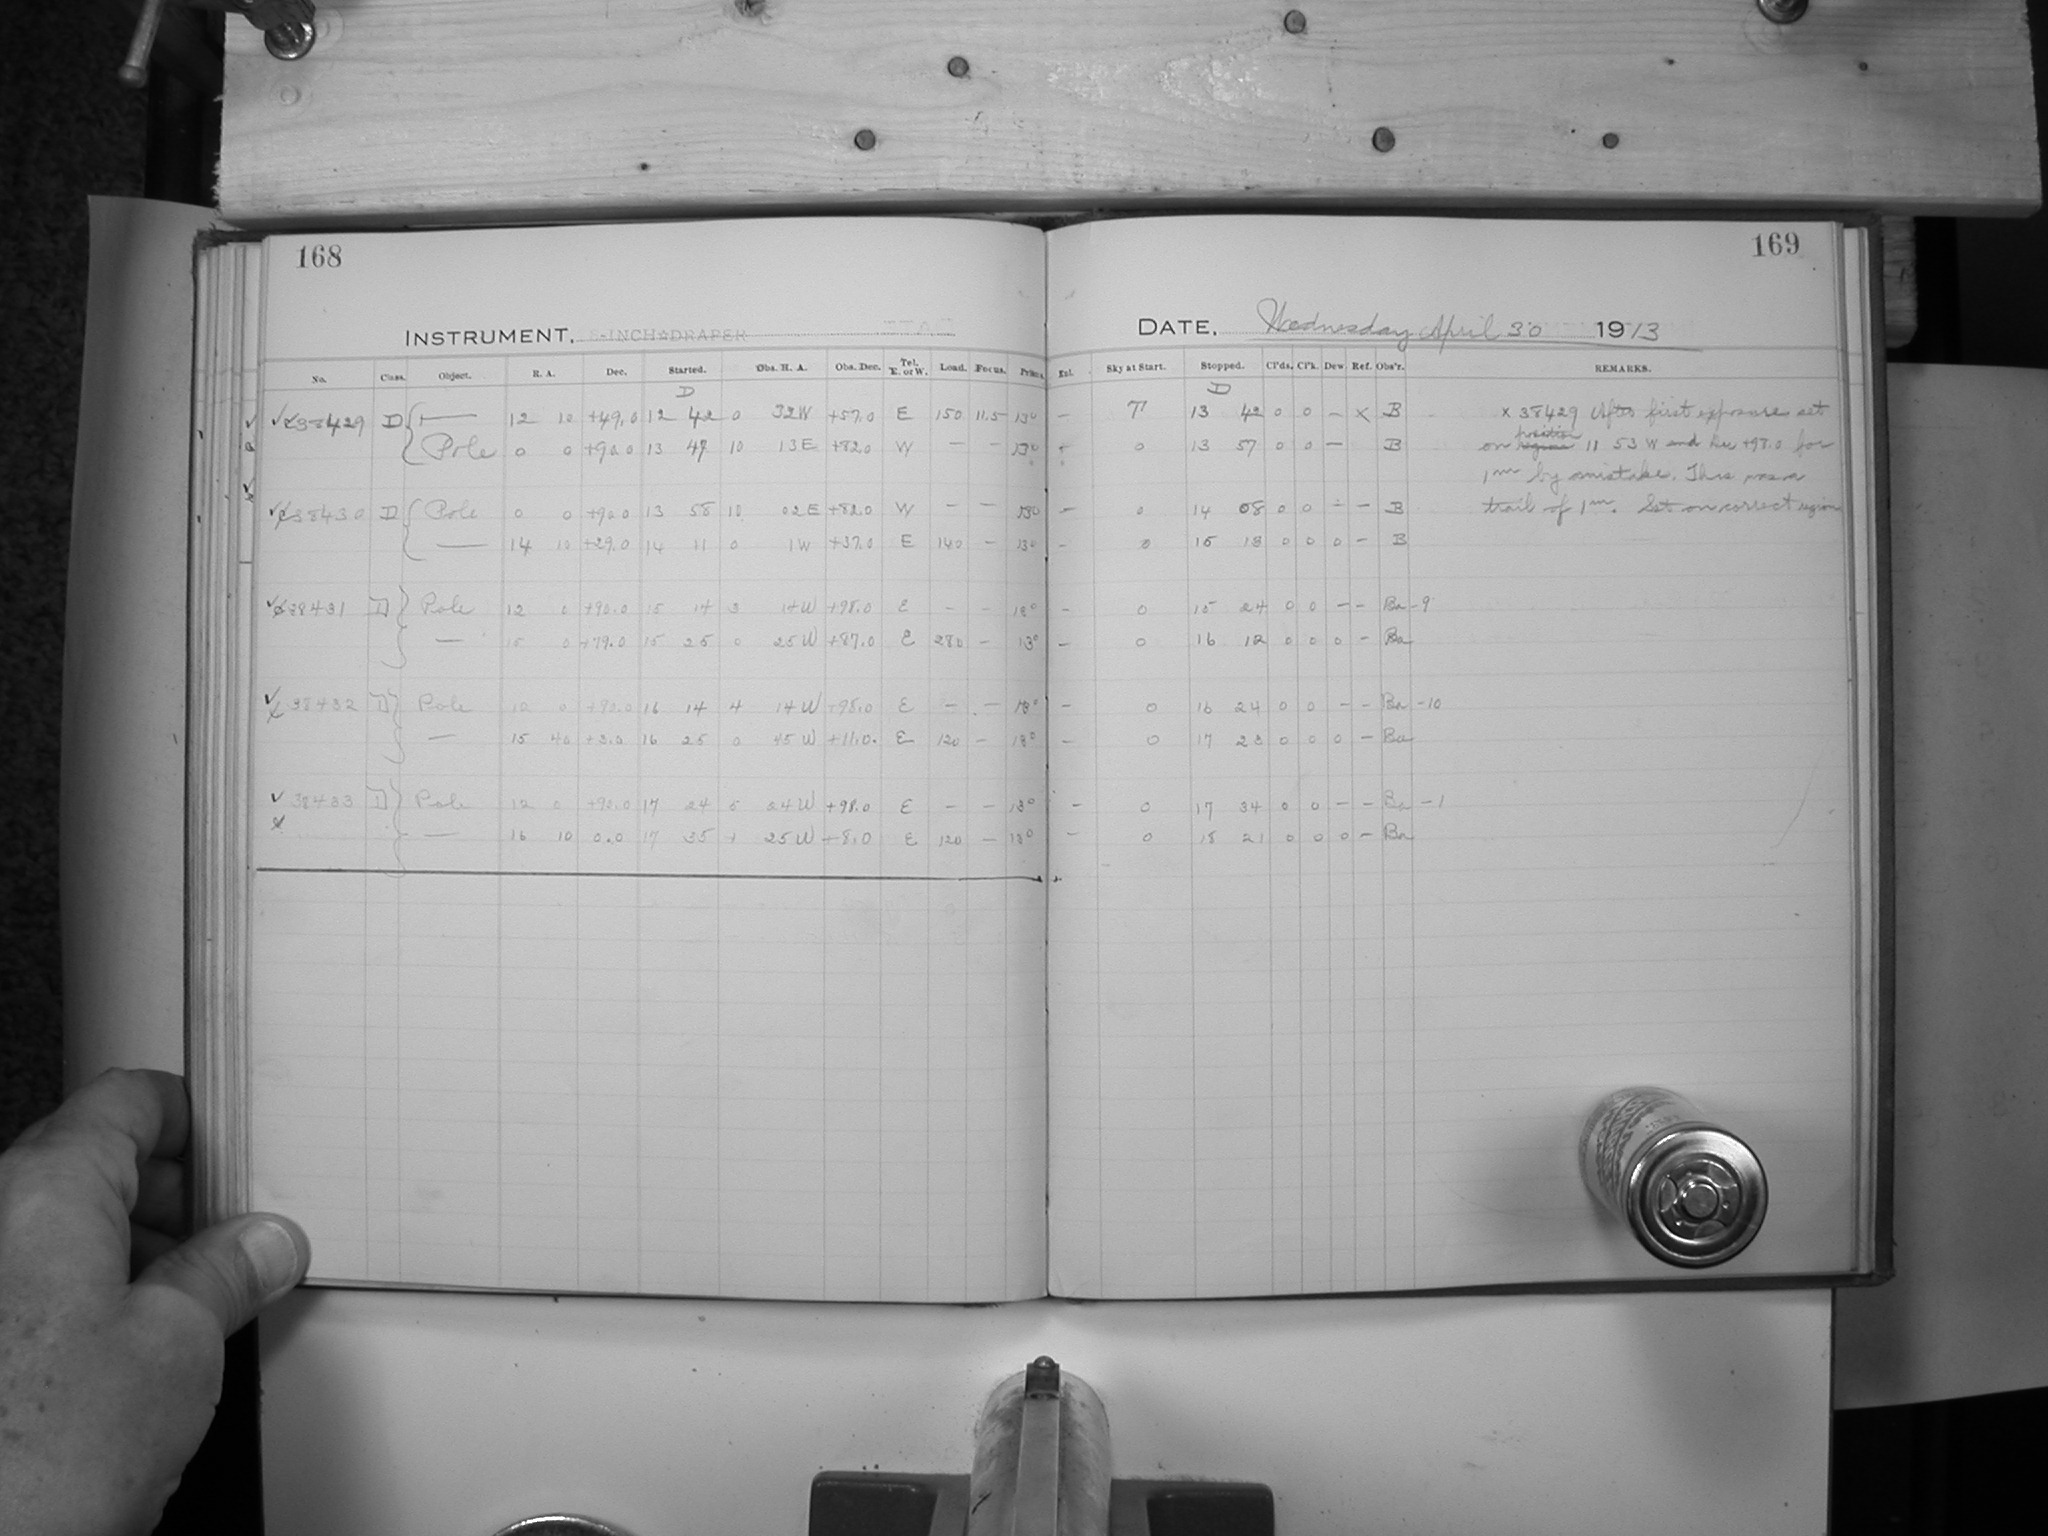 168
169
INSTRUMENT. 8-INCH DRAPER
DATE. Wednesday April 30 1913
No. Class. Object. R. A. Dec. Started. Obs. H. A. Obs. Dec. Tel. E. or W. Load. Focus. Prism. Exl. Sky at Start. Stopped. Cl'ds. Cl'k. Dew Ref. Obs'r. REMARKS.
D D
38429 D — 12 12 +49.0 12 42 0 32W +57.0 E 150 11.5 13° — 13 42 0 0 — X B x 38429 After first exposure set
Pole 0 0 +90.0 13 47 10 13E +82.0 W — — 13° 0 13 57 0 0 — B on position 11 53 W and Dec +98.0 for
1m by mistake. This was a
38430 D Pole 0 0 +90.0 13 58 10 02E +82.0 W — — 13° — 0 14 08 0 0 — — B trail of 1m. Set on correct region
— 14 10 +29.0 14 11 0 1W +37.0 E 140 — 13° — 0 15 13 0 0 0 — B
38431 D Pole 12 0 +90.0 15 14 3 14W +98.0 E — — 13° — 0 15 24 0 0 — — Ba —9
— 15 0 +79.0 15 25 0 25W +87.0 E 280 — 13° — 0 16 12 0 0 0 — Ba
38432 D Pole 12 0 +90.0 16 14 4 14W +98.0 E — — 13° — 0 16 24 0 0 — — Ba —10
— 15 40 +3.0 16 25 0 45W +11.0 E 120 — 13° — 0 17 23 0 0 0 — Ba
38433 D Pole 12 0 +90.0 17 24 5 24W +98.0 E — — 13° — 0 17 34 0 0 — — Ba —1
— 16 10 0.0 17 35 1 25W +8.0 E 120 — 13° — 0 18 21 0 0 0 — Ba